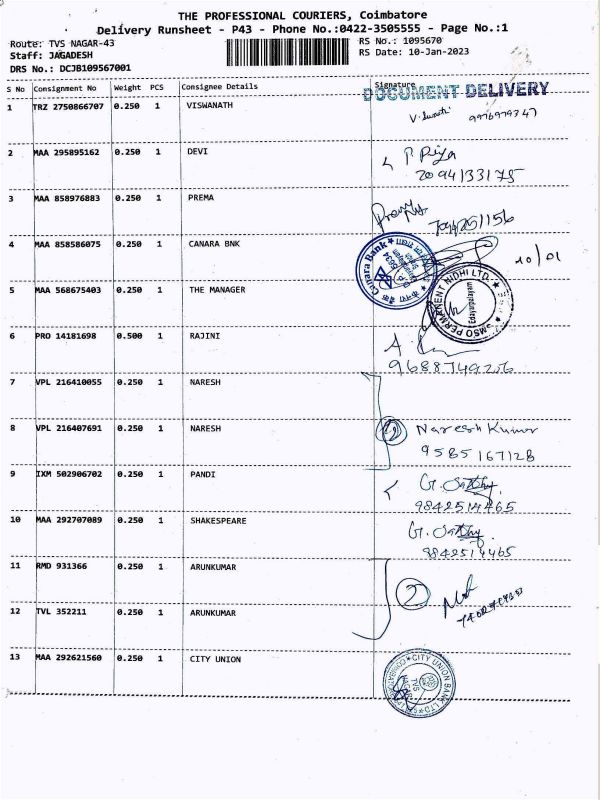 THE PROFESSIONAL COURIERS, Coimbatore
Delivery Runsheet - P43 - Phone No.:0422-3505555 - Page No.:1
Route: TVS NAGAR-43
RS No.: 1095670
Staff: JAGADESH
RS Date: 10-Jan-2023
DRS No.: DCJB109567001
S No Consignment No Weight PCS Consignee Details Signature
DOCUMENT DELIVERY
1 TRZ 2750866707 0.250 1 VISWANATH
9976979347
2 MAA 295895162 0.250 1 DEVI
P Priya
2094133175
3 MAA 858976883 0.250 1 PREMA
4 MAA 858586075 0.250 1 CANARA BNK
Canara Bank
10/01
5 MAA 568675403 0.250 1 THE MANAGER
PERMANENT NIDHI LTD.
6 PRO 14181698 0.500 1 RAJINI
9688749256
7 VPL 216410055 0.250 1 NARESH
8 VPL 216407691 0.250 1 NARESH
Naresh Kumar
9585167128
9 IXM 502906702 0.250 1 PANDI
G. Sathy
9842514465
10 MAA 292707089 0.250 1 SHAKESPEARE
G. Sathy
9842514465
11 RMD 931366 0.250 1 ARUNKUMAR
2
12 TVL 352211 0.250 1 ARUNKUMAR
13 MAA 292621560 0.250 1 CITY UNION
CITY UNION BANK LTD
TVS
NAGAR